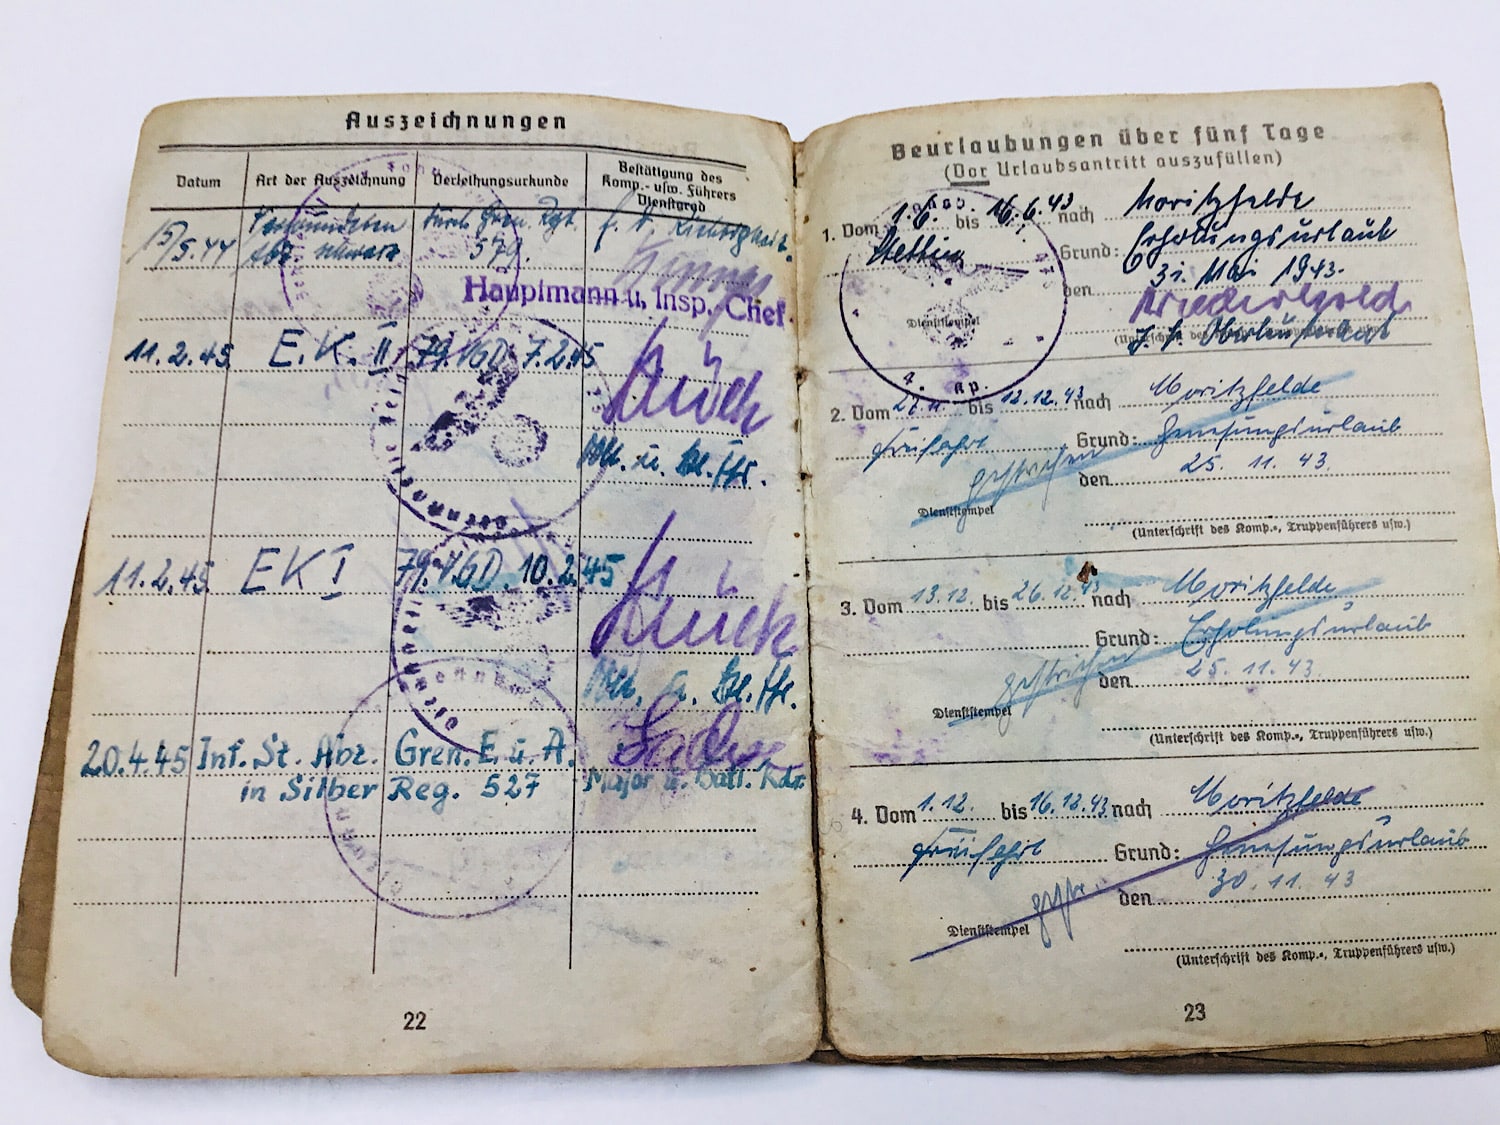 Auszeichnungen
Datum Art der Auszeichnung Verleihungsurkunde Bestätigung des Komp.- usw. Führers Dienstgrad
15/5.44 Verwundeten durch Gren. Rgt. f. d.
Abz. schwarz 579
Hauptmann u. Insp.-Chef
11.2.45 E.K. II 79. VGD 7.2.45
11.2.45 EK I 79. VGD. 10.2.45
20.4.45 Inf. St. Abz. Gren. E. u. A.
in Silber Reg. 527 Major u. Batl. Kdr.
22
Beurlaubungen über fünf Tage
(Vor Urlaubsantritt auszufüllen)
1. Vom 1.6. bis 16.6.43 nach Moritzfelde
Stettin Grund: Erholungsurlaub
den 31. Mai 1943.
Dienststempel
2. Vom 27.11. bis 12.12.43 nach Moritzfelde
Freifahrt Grund: Genesungsurlaub
gestrichen den 25. 11. 43.
Dienststempel
(Unterschrift des Komp.-, Truppenführers usw.)
3. Vom 13.12. bis 26.12.43 nach Moritzfelde
Grund: Erholungsurlaub
gestrichen den 25. 11. 43.
Dienststempel
(Unterschrift des Komp.-, Truppenführers usw.)
4. Vom 1.12. bis 16.12.43 nach Moritzfelde
Freifahrt Grund: Genesungsurlaub
den 30. 11. 43
Dienststempel
(Unterschrift des Komp.-, Truppenführers usw.)
23